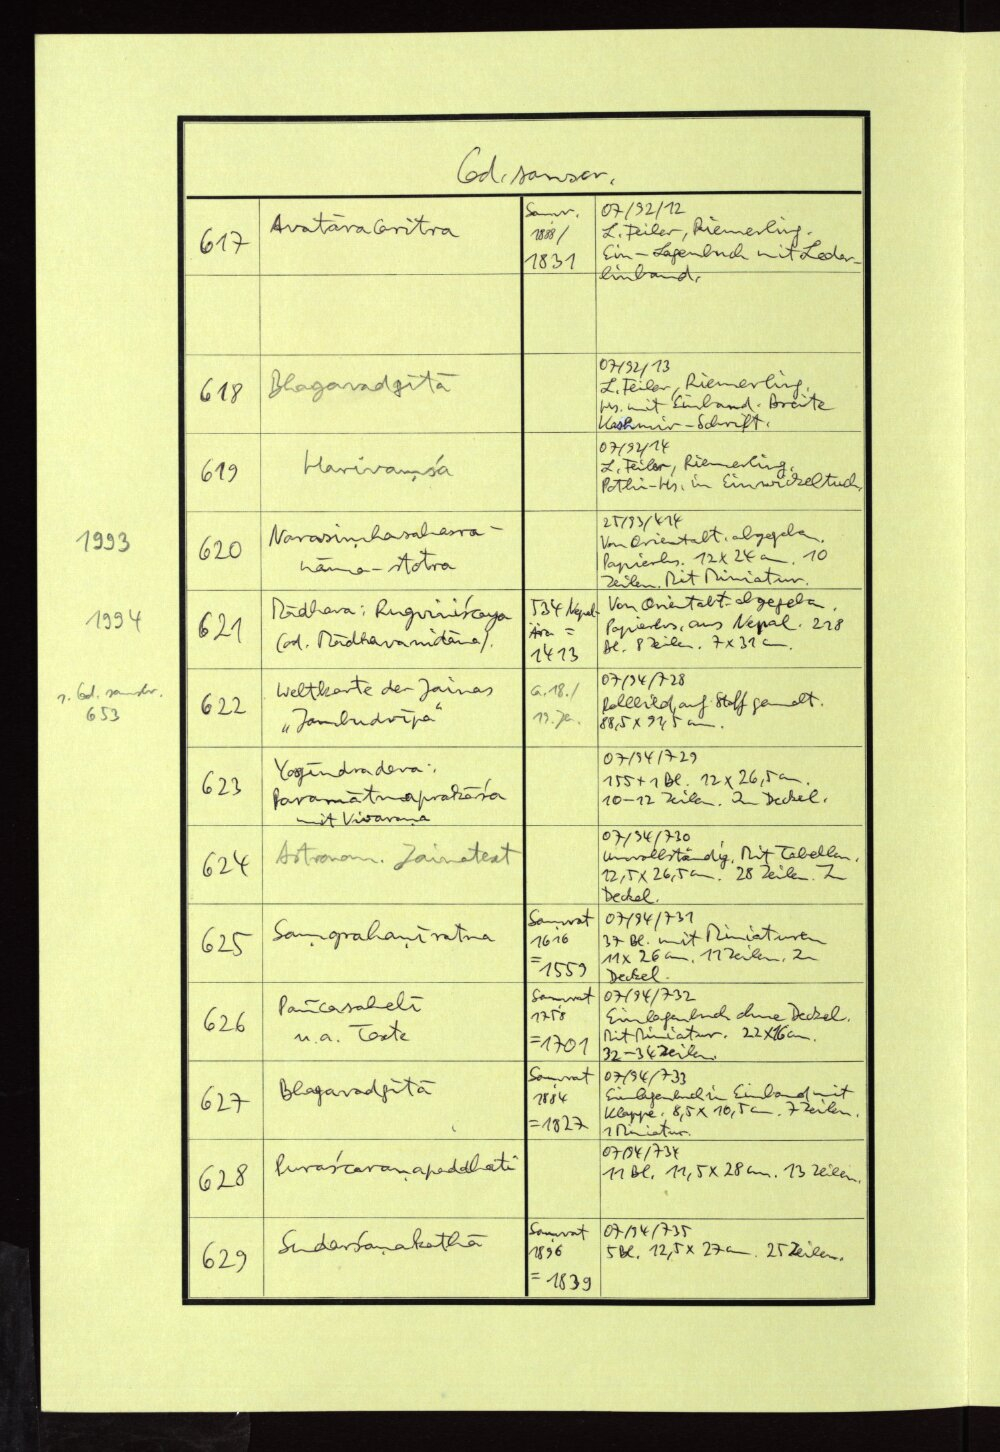 Cod. sanscr.
617
Avatāracaritra
Samv.
1888/
1831
07/92/12
L. Feiler, Riemerling.
Ein-Lagenbuch mit Leder-
einband.
618
Bhagavadgītā
07/92/13
L. Feiler, Riemerling.
Hs. mit Einband. Breite
Kashmir-Schrift.
619
Harivaṃśa
07/92/14
L. Feiler, Riemerling.
Pothi-Hs. in Einwickeltuch.
1993
620
Narasiṃhasahasra-
nāma-stotra
25/93/414
Von Orientabt. abgegeben.
Papierhs. 12 x 24 cm. 10
Zeilen. Mit Miniatur.
1994
621
Mādhava: Rugviniścaya
(od. Mādhavanidāna).
534 Nepal-
Ära =
1413
Von Orientabt. abgegeben.
Papierhs. aus Nepal. 218
Bl. 8 Zeilen. 7 x 31 cm.
s. Cod. sanskr.
653
622
Weltkarte der Jainas
„Jambudvīpa“
a. 18./
19. Jh.
07/94/728
Rollbild, auf Stoff gemalt.
88,5 x 91,5 cm.
623
Yogīndradeva:
Paramātmaprakāśa
mit Vivaraṇa
07/94/729
155 + 1 Bl. 12 x 26,5 cm.
10-12 Zeilen. In Deckel.
624
Astronom. Jainatext
07/94/730
Unvollständig. Mit Tabellen.
12,5 x 26,5 cm. 28 Zeilen. In
Deckel.
625
Saṃgrahaṇīratna
Saṃvat
1616
= 1559
07/94/731
37 Bl. mit Miniaturen
11 x 26 cm. 11 Zeilen. In
Deckel.
626
Pañcasahelī
u.a. Texte
Saṃvat
1758
= 1701
07/94/732
Einlagenbuch ohne Deckel.
Mit Miniatur. 22 x 16 cm.
32-34 Zeilen.
627
Bhagavadgītā
Saṃvat
1884
= 1827
07/94/733
Einlagenbuch in Einband mit
Klappe. 8,5 x 10,5 cm. 7 Zeilen.
1 Miniatur.
628
Puraścaraṇapaddhati
07/94/734
11 Bl. 11,5 x 28 cm. 13 Zeilen.
629
Sudarśanakathā
Saṃvat
1896
= 1839
07/94/735
5 Bl. 12,5 x 27 cm. 25 Zeilen.